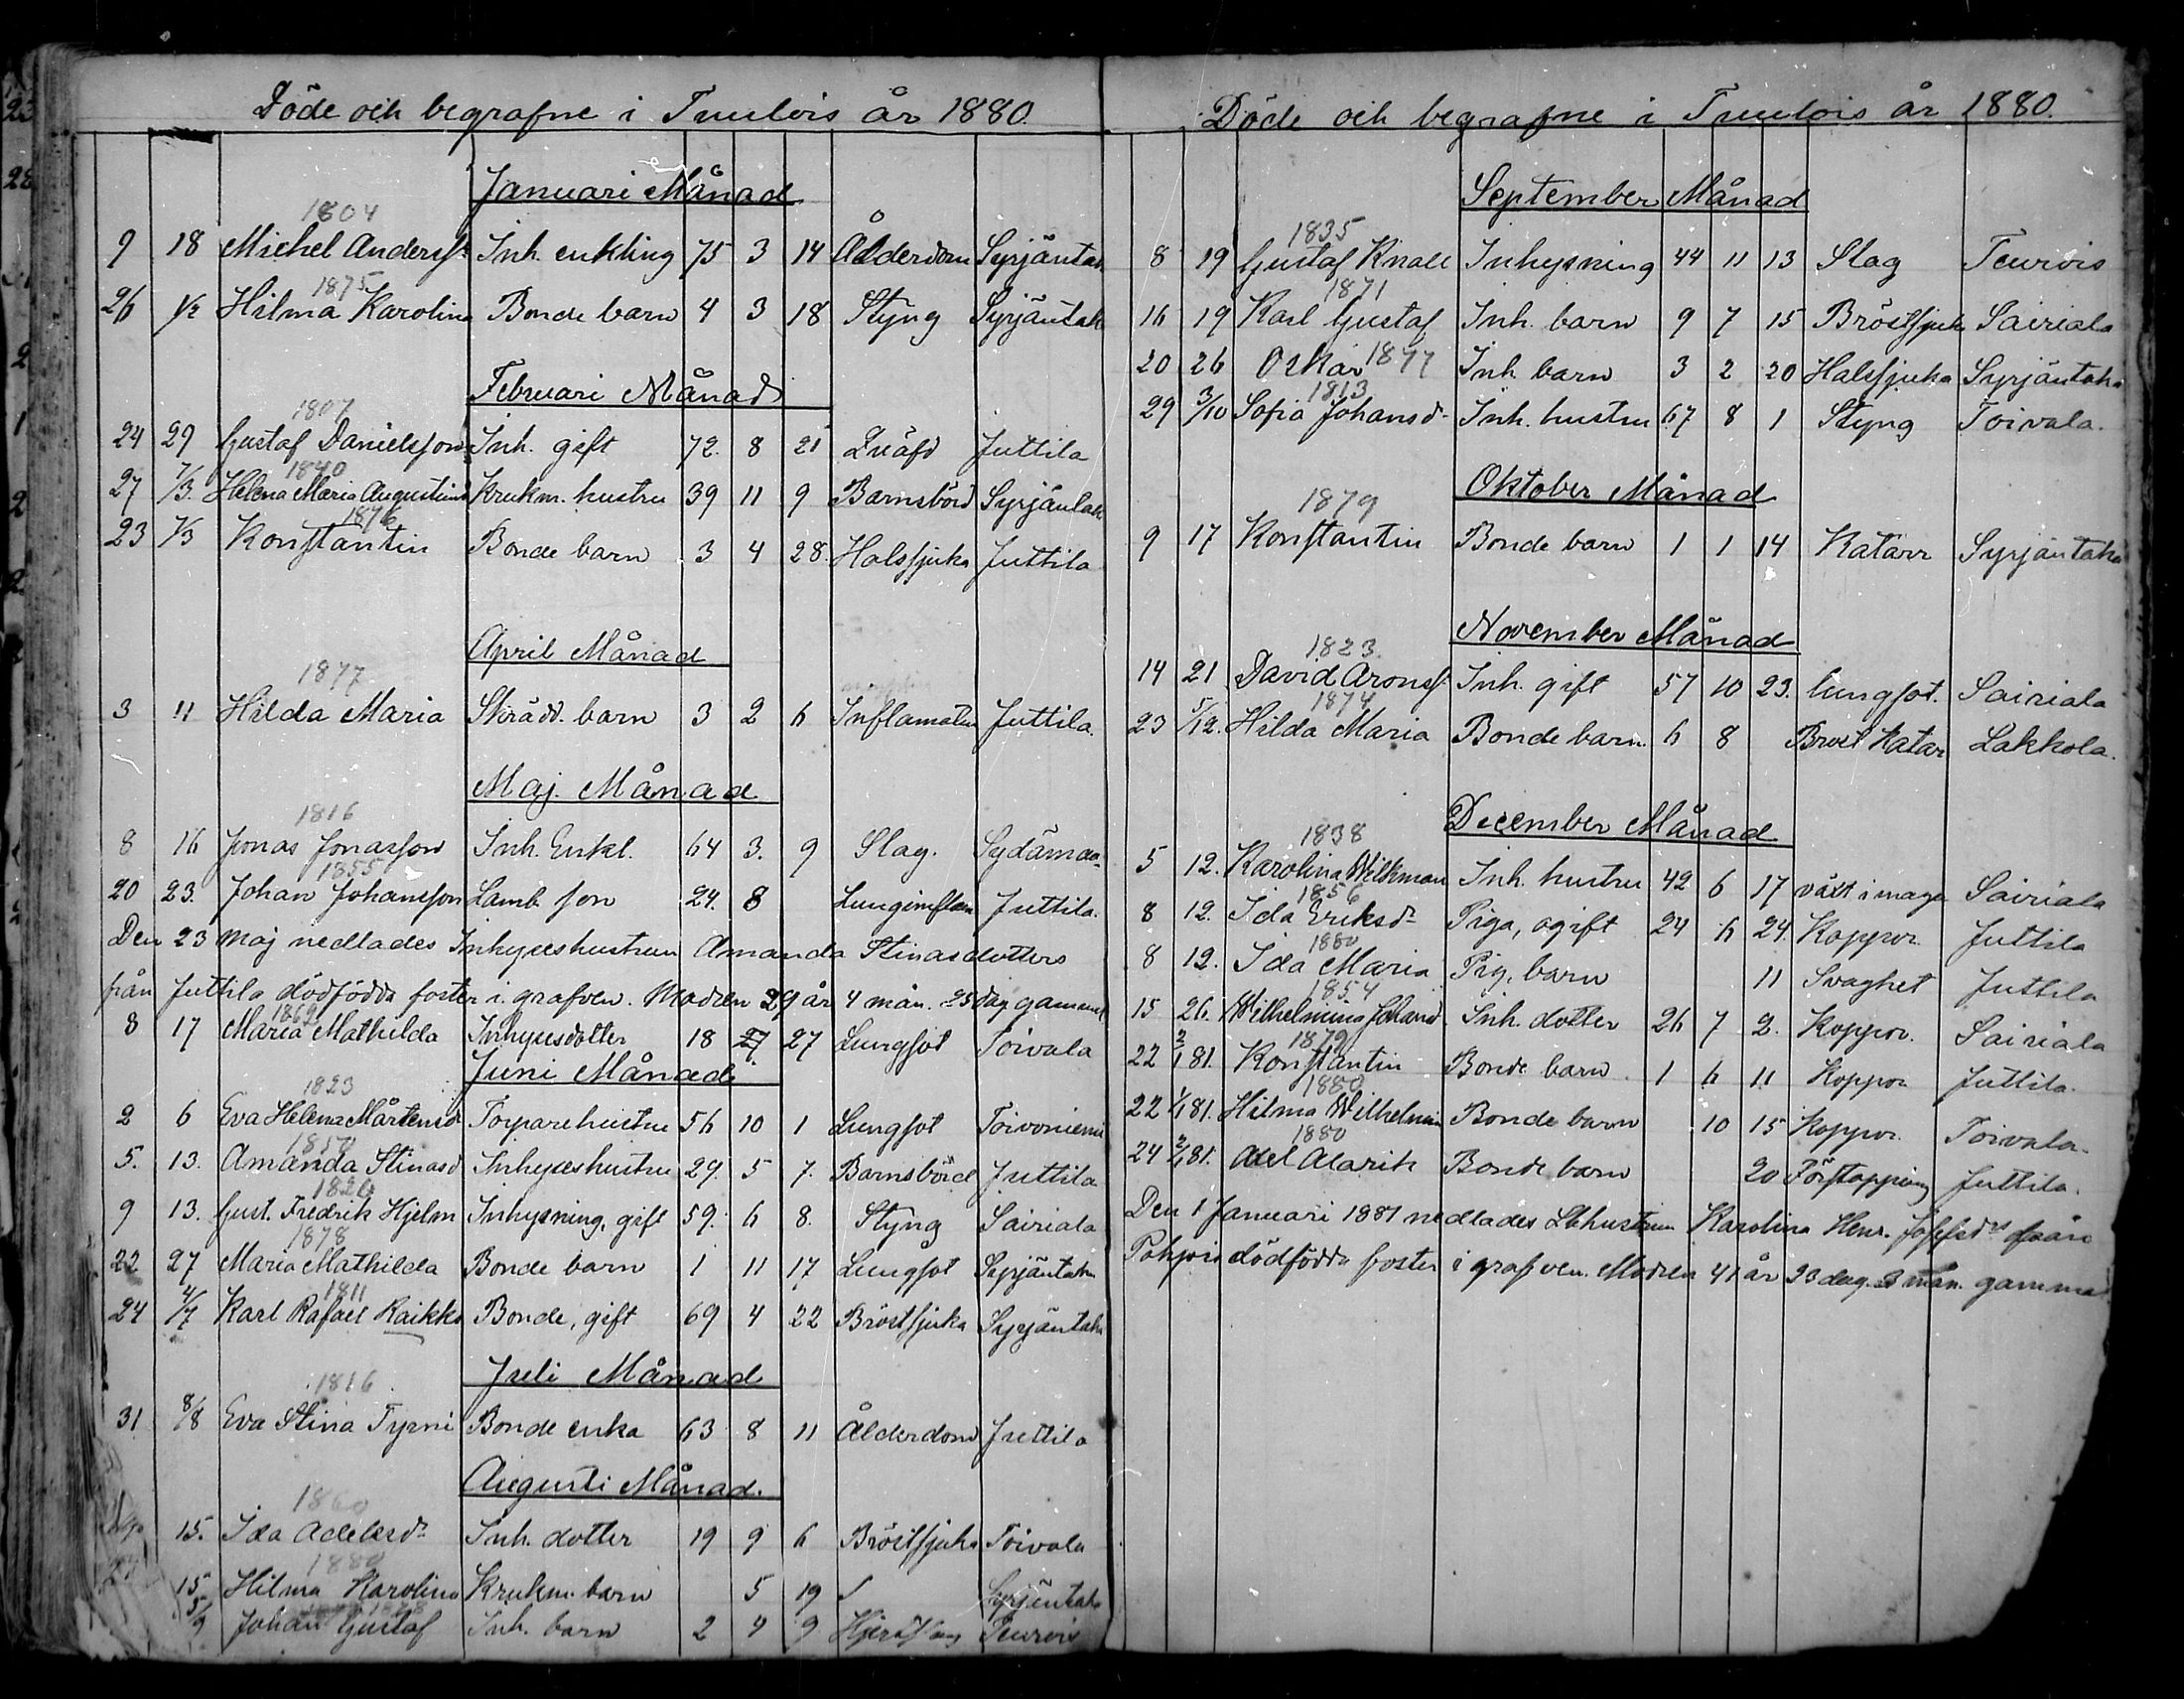 Döde och begrafne i Tuulois år 1880.
Januari Månad
1804
9 18 Michel Anderss. Inh. enkling 75 3 14 Ålderdom Syrjäntak
1875
26 1/2 Hilma Karolina Bonde barn 4 3 18 Styng Syrjäntak
Februari Månad
1807
24 29 Gustaf Danielsson Inh. gift 72. 8 21 Juttila
1840
27 7/3. Helena Maria Augustind Krukm. hustru 39 11 9 Barnsbörd Syrjäntak
1876
23 7/3 Konstantin Bonde barn 3 4 28. Halssjuka Juttila
April Månad
1877
3 11 Hilda Maria Skrädd. barn 3 2 6 Inflamation Juttila.
Maj. Månad
1816
8 16 Jonas Jonasson Inh. Enkl. 64 3. 9 Slag. Sydänmaa
1855
20 23. Johan Johansson Lamb. son 24. 8 Lunginflam Juttila.
Den 23 Maj nedlades Inhyseshustrun Amanda Stinasdotters
från Juttila dödfödda foster i grafven. Modren 29 år 4 mån. 25 dag gammal
1862
8 17 Maria Mathilda Inhysesdotter 18 27 27 Lungsot Toivala
Juni Månad
1823
2 6 Eva Helena Mårtensd Torparehustru 56 10 1 Lungsot Toivoniemi
1850
5. 13. Amanda Stinasd Inhyseshustru 29. 5 7. Barnsbörd Juttila
1820
9 13. Gust. Fredrik Hjelm Inhysning, gift 59. 6 8. Styng Sairiala
1878
22 27 Maria Mathilda Bonde barn 1 11 17 Lungsot Syrjäntaka
1811
24 4/7 Karl Rafael Kaikko Bonde, gift 69 4 22 Bröstsjuka Syrjäntaka
Juli Månad
1816
31 8/8 Eva Stina Tyrni Bonde enka 63 8 11 Ålderdom Juttila
Augusti Månad.
1860
15. Ida Adelsdr Inh. dotter 19 9 6 Bröstsjuka Toivala
1880
15 Hilma Karolina Krukm. barn 5 19 Syrjäntaka
5/9 Johan Gustaf Inh. barn 2 9 Teurois
Döde och begrafne i Tuulois år 1880.
September Månad
1835
8 19 Gustaf Knall Inhysning 44 11 13 Slag Teurois
1871
16 19 Karl Gustaf Inh. barn 9 7 15 Bröstsjuka Sairiala
20 26 Oskar 1877 Inh barn 3 2 20 Halssjuka Syrjäntaka
1813
29 3/10 Sofia Johansd. Inh. hustru 67 8 1 Styng Toivala.
Oktober Månad
1879
9 17 Konstantin Bonde barn 1 1 14 Katarr Syrjäntaka
November Månad
1823.
14 21 David Aronss. Inh. gift 57 10 23. lungsot. Sairiala
1874
23 5/12. Hilda Maria Bonde barn. 6 8 Bröst Katar Lakkola.
December Månad
1838
5 12. Karolina Wilkman Inh. hustru 42 6 17 växt i mage Sairiala
1856
8 12. Ida Eriksdr Piga, ogift 24 6 24. Koppor. Juttila
1880
8 12. Ida Maria Pig. barn 11 Svaghet Juttila
1854
15 26. Wilhelmina Johansd. Inh. dotter 26 7 2. Koppor. Sairiala
1879
22 2/1 81. Konstantin Bonde barn 1 6 11 Koppor Juttila.
1880
22 1/1 81. Hilma Wilhelmin Bonde barn 10 15 Koppor. Toivala.
1880
24 2/1 81. Axel Alarik Bonde barn 20 Förstoppning Juttila.
Den 1 Januari 1881 nedlades Karolina Henr. från
Pohjois dödfödda foster i grafven. Modren 41 år 23 dag. 3 mån. gammal